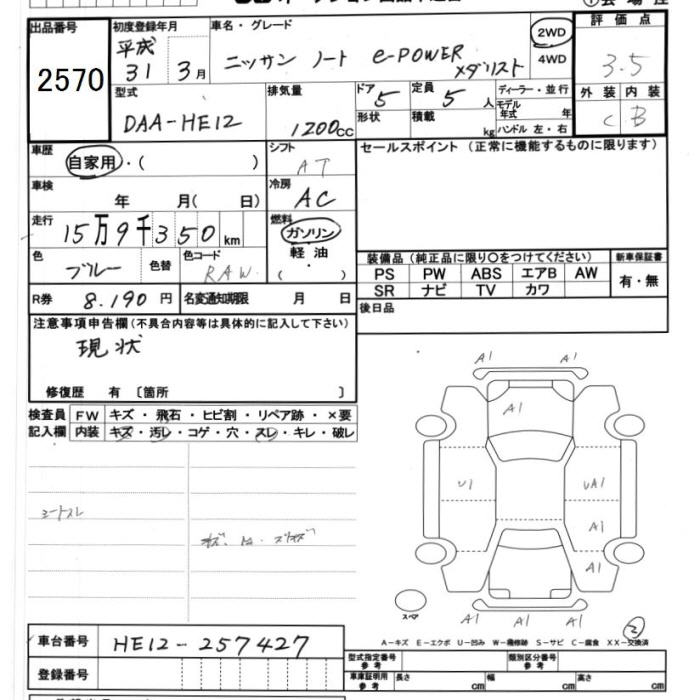 出品番号 初度登録年月 車名・グレード 2WD 4WD 評価点
2570 平成31 3月 ニッサン ノート e-POWER メダリスト 3.5
型式 排気量 ドア 定員 ディーラー・並行 外装 内装
DAA-HE12 1200cc 5 5人 モデル年式 年 C B
形状 積載 kg ハンドル 左・右
車歴 シフト セールスポイント (正常に機能するものに限ります)
自家用・( ) AT
車検 冷房
年 月( 日) AC
走行 燃料
15万9千350km ガソリン
色 色替 色コード 軽油・
ブルー RAW ( )
装備品 (純正品に限り〇をつけてください) 新車保証書
PS PW ABS エアB AW 有・無
SR ナビ TV カワ
R券 8.190円 名変通知期限 月 日
後日品
注意事項申告欄(不具合内容等は具体的に記入して下さい)
現状
修復歴 有 〔箇所 〕
検査員 FW キズ・飛石・ヒビ割・リペア跡・×要
記入欄 内装 キズ・汚レ・コゲ・穴・スレ・キレ・破レ
シートスレ
A1 A1
A1
U1 UA1
A1
A1
A1 A1 A1
スペア
2
A-キズ E-エクボ U-凹み W-補修跡 S-サビ C-腐食 XX-交換済
車台番号 HE12-257427
登録番号
型式指定番号 参考 類別区分番号 参考
車庫証明用 参考 長さ cm 幅 cm 高さ cm